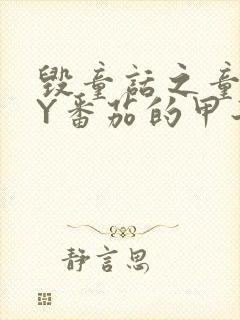 毁童话之童
Y番茄的甲
静言思